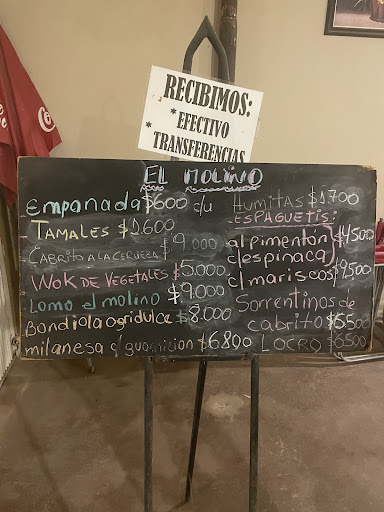 RECIBIMOS:
* EFECTIVO
* TRANSFERENCIAS
EL MOLINO
Empanada $600 c/u
TAMALES $1600
CABRITO A LA CERVEZA $9.000
WOK DE VEGETALES $5.000
Lomo el molino $9.000
Bondiola agridulce $8.000
milanesa c/guarnicion $6800
HUMITAS $1700
ESPAGUETIS:
al pimentón
c/espinaca $4500
c/mariscos $9500
Sorrentinos de
cabrito $6.500
LOCRO $6500